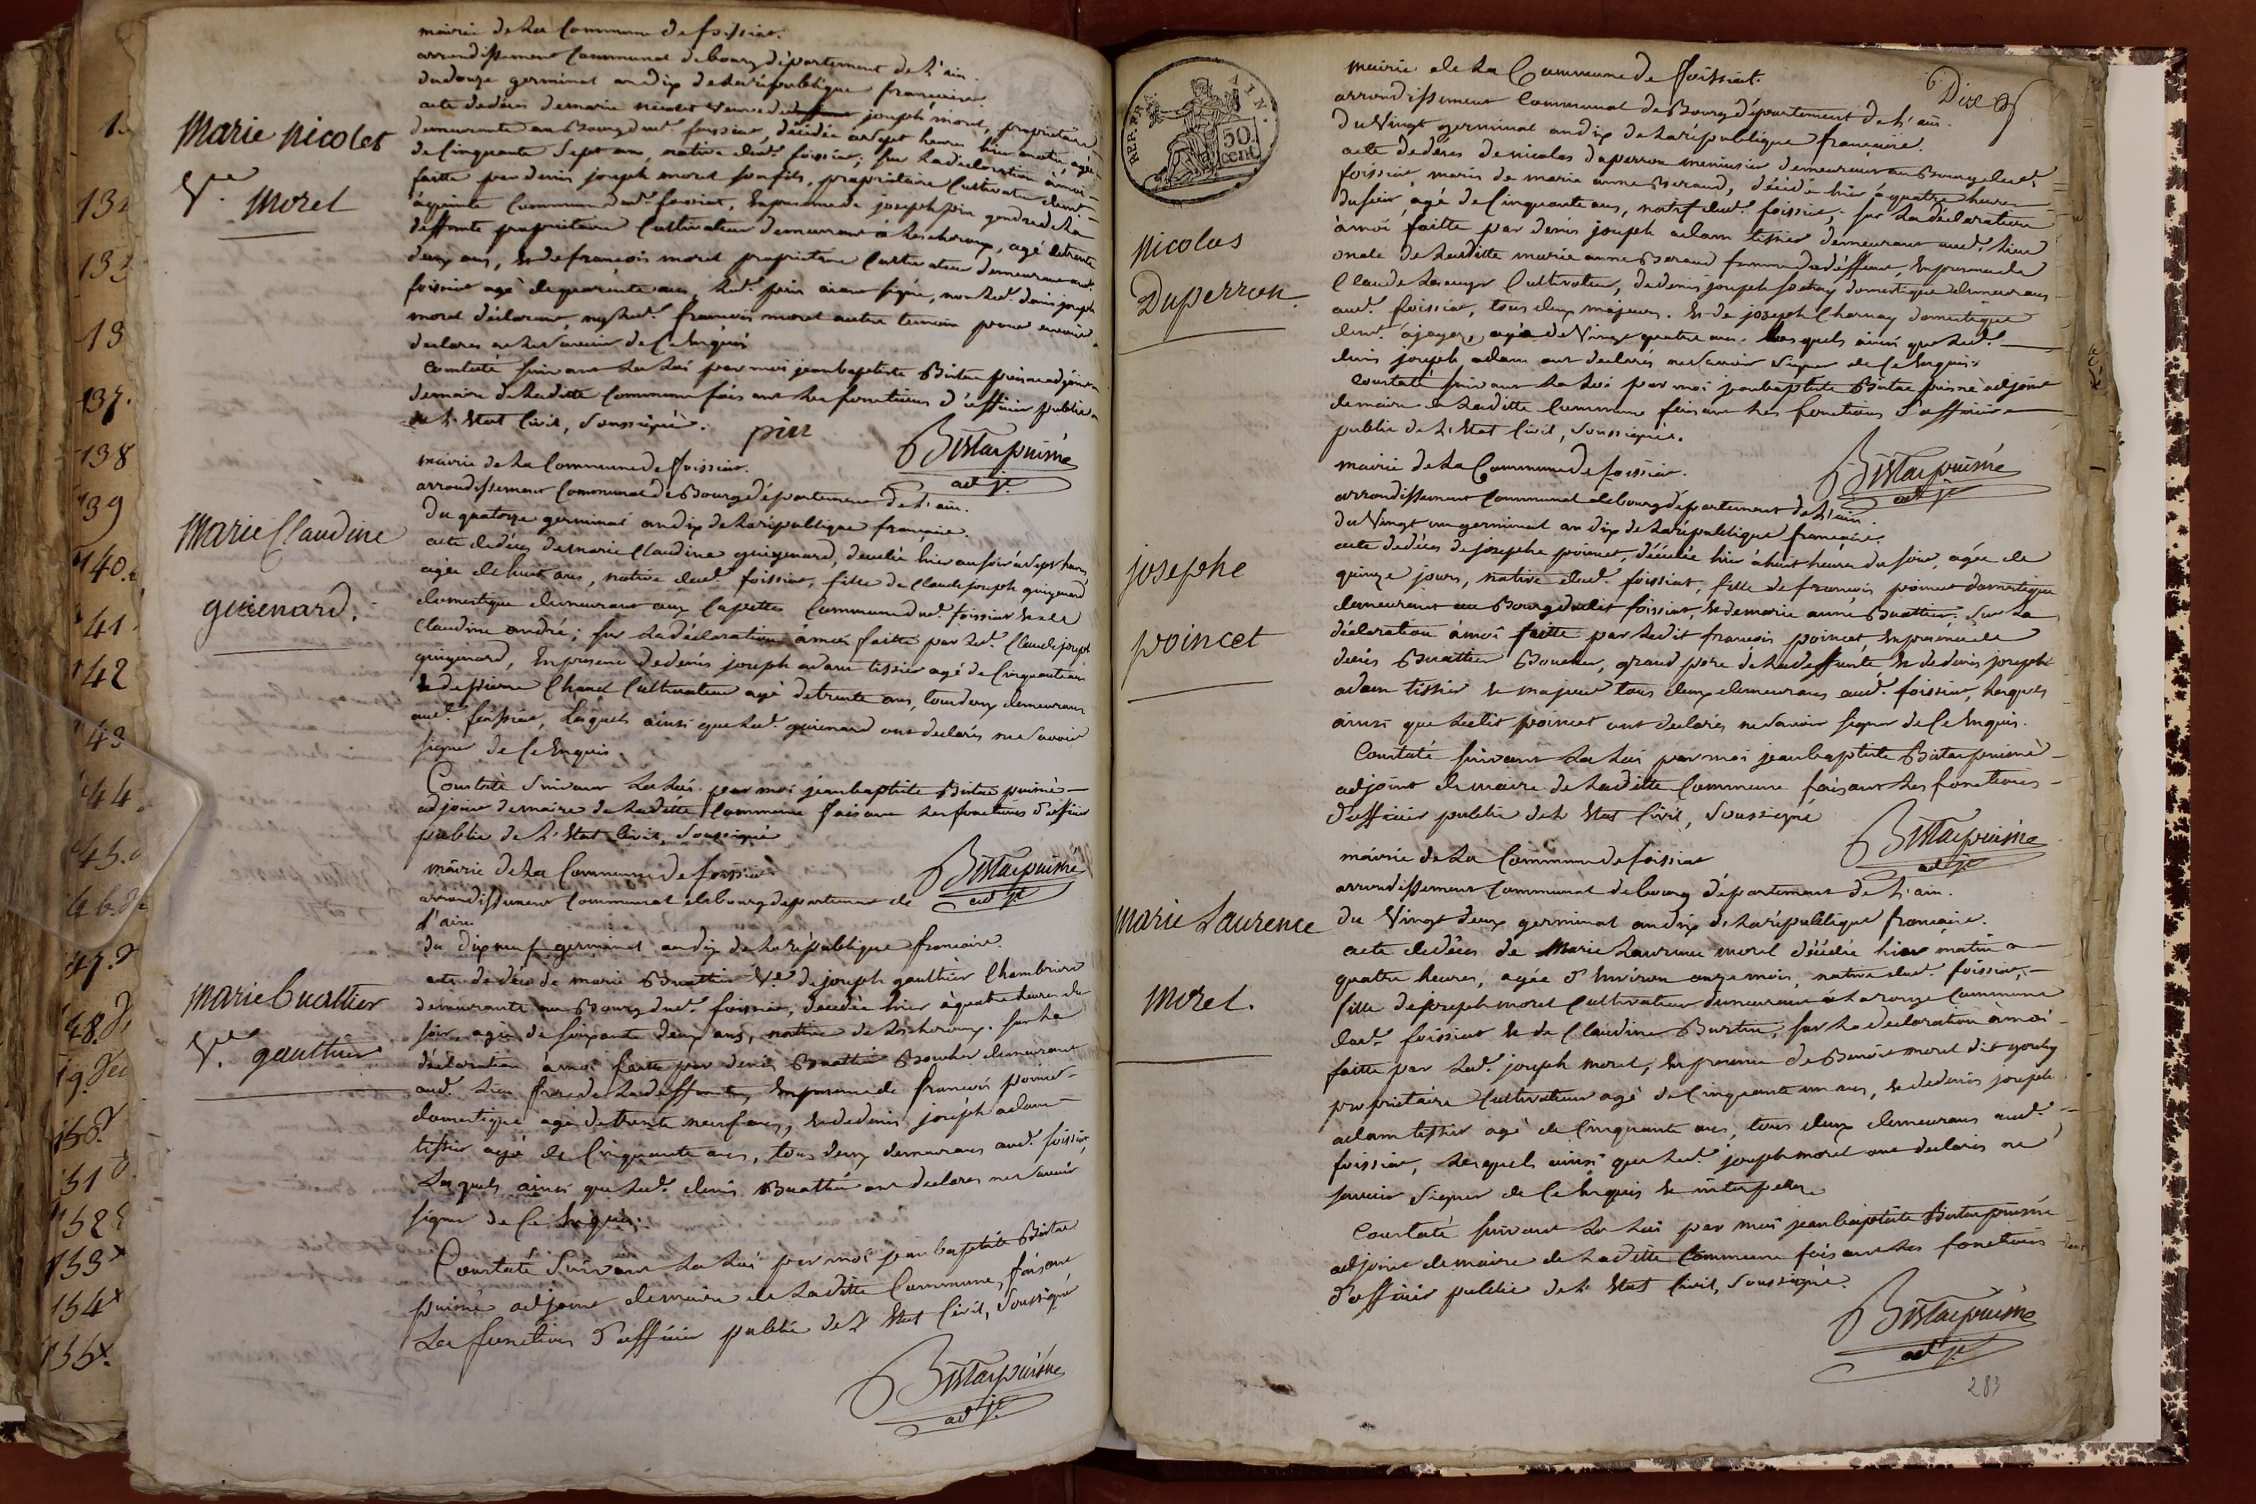 mairie de La Commune de foissiat.
arrondissement Communal de bourg département de L'ain.
du douze germinal an dix de La république française.
acte de décès de marie nicolet Veuve de joseph morel, propriétaire
demeurante au Bourg dud. foissiat, décédée à sept heures hier matin agée
de Cinquante Sept ans, native dud. foissiat; sur La déclaration à moi
faitte par denis joseph morel son fils, propriétaire Cultivateur demt.
Commune dud. foissiat, En presence de joseph pin gendre de La
deffunte propriétaire Cultivateur demeurant à Lescheroux, agé de trente
deux ans, et de françois morel propriétaire Cultivateur demeurant aud.
foissiat agé de quarente ans, Led. pin aiant signé, non Led. denis joseph
morel déclarant, ny Led. françois morel autre temoin pour avoir
declarés ne Le Savoir de Ce Enquis
Constaté suivant La Loi par moi jean baptiste Bistac puisné adjoint
de maire de Laditte Commune faisant Les fonctions d'officier public
de L'Etat Civil, Soussigné.
pin
Bistac puisné
adjt.
Marie nicolet
Ve.
Morel
mairie de La Commune de foissiat.
arrondissement Communal de Bourg département de L'ain.
du quatorze germinal an dix de La république française.
acte de décès de marie Claudine guigenard, décédée hier au soir à Sept heures,
agée de huit ans, native dud. foissiat, fille de Claude joseph guigenard
domestique demeurant aux Capettes Commune dud. foissiat et de
Claudine andré; sur La déclaration à moi faitte par Led. Claude joseph
guigenard, En presence de denis joseph adam tissier agé de Cinquante ans
et de pierre Chanel Cultivateur agé de trente ans, tous deux demeurans
aud. foissiat, Lesquels ainsi que Led. guienard ont declarés ne Savoir
signer de Ce Enquis.
Constaté Suivant La Loi par moi jean baptiste Bistac puisné
adjoint de maire de Laditte Commune faisant Les fonctions d'officier
public de L'Etat Civil, Soussigné
Bistac puisné
adjt.
Marie Claudine
guienard.
mairie de La Commune de foissiat
arrondissement Communal de bourg departement de
L'ain.
du dix neuf germinal an dix de La république française.
acte de décès de marie Buattier Ve. de joseph gauthier Chambrier
demeurante au Bourg dud. foissiat, décédée hier à quatre heures du
soir, agée de soixante deux ans, native de Lescheroux. sur La
déclaration à moi faite par denis Buattier Boucher demeurant
aud. Lieu frere de La deffunte, En presence de françois poincet
domestique agé de trente neuf ans, et de denis joseph adam
tissier agé de Cinquante ans, tous deux demeurans aud. foissiat,
Lesquels ainsi que Led. denis Buattier ont declarés ne Savoir
signer de Ce Enquis.
Constaté Suivant La Loi par moi jean baptiste Bistac
puisné adjoint de maire de Laditte Commune, faisant
Les fonctions d'officier public de L'Etat Civil, Soussigné
Bistac puisné
adjt.
Marie Buattier
Ve. gauthier
1
13
137.
138
139
140.
41
42
43
44
45.
47.
48.
154
REP. FRA.
AIN.
50.
cent.
Dix
mairie de La Commune de foissiat.
arrondissement Communal de Bourg département de L'ain.
du Vingt germinal an dix de La république française.
acte de décès de nicolas duperron menuisier demeurant au Bourg dud.
foissiat, maris de marie anne Beraud, décédé hier à quatre heures
du soir, agé de Cinquante ans, natif dud. foissiat; sur La déclaration
à moi faitte par denis joseph adam tissier demeurant aud. Lieu
oncle de Laditte marie anne Beraud femme du deffunt, En presence de
Claude Cultivateur, de denis joseph domestique demeurans
aud. foissiat, tous deux majeurs. Et de joseph Charnay domestique
demt. à jayat, agé de Vingt quatre ans. Lesquels ainsi que Led.
denis joseph adam ont declarés ne Savoir signer de Ce Enquis.
Constaté suivant La Loi par moi jean baptiste Bistac puisné adjoint
de maire de Laditte Commune faisant Les fonctions d'officier
public de L'Etat Civil, Soussigné.
Bistac puisné
adjt.
nicolas
Duperron
mairie de La Commune de foissiat.
arrondissement Communal de bourg département de L'ain.
du Vingt un germinal an dix de La république française.
acte de décès de josephe poincet, décédée hier à huit heures du soir, agée de
quinze jours, native dud. foissiat, fille de françois poincet domestique
demeurant au Bourg dudit foissiat, et de marie anne Buattier. Sur La
déclaration à moi faitte par Ledit françois poincet, En presence de
denis Buattier Boucher, grand pere de La deffunte et de denis joseph
adam tissier et majeur tous deux demeurans aud. foissiat, Lesquels
ainsi que Ledit poincet ont declarés ne Savoir signer de Ce Enquis.
Constaté suivant La Loi par moi jean baptiste Bistac puisné
adjoint de maire de Laditte Commune faisant Les fonctions
d'officier public de L'Etat Civil, Soussigné
Bistac puisné
adjt.
josephe
poincet
mairie de La Commune de foissiat
arrondissement Communal de bourg département de L'ain.
du Vingt deux germinal an dix de La république française.
acte de décès de Marie Laurence morel décédée hier matin a
quatre heures, agée d'Environ onze mois, native dud. foissiat,
fille de joseph morel Cultivateur demeurant à Laronze Commune
dud. foissiat et de Claudine Buttin; sur La declaration à moi
faitte par Led. joseph morel, En presence de Benoit morel dit
propriétaire Cultivateur agé de Cinquante un ans, et de denis joseph
adam tissier agé de Cinquante ans, tous deux demeurans aud.
foissiat, Lesquels ainsi que Led. joseph morel ont declarés ne
savoir signer de Ce Enquis et interpellé
Constaté suivant La Loi par moi jean baptiste Bistac puisné
adjoint de maire de Laditte Commune faisant Les fonctions
d'officier public de L'Etat Civil, Soussigné.
Bistac puisné
adjt.
Marie Laurence
Morel.
283